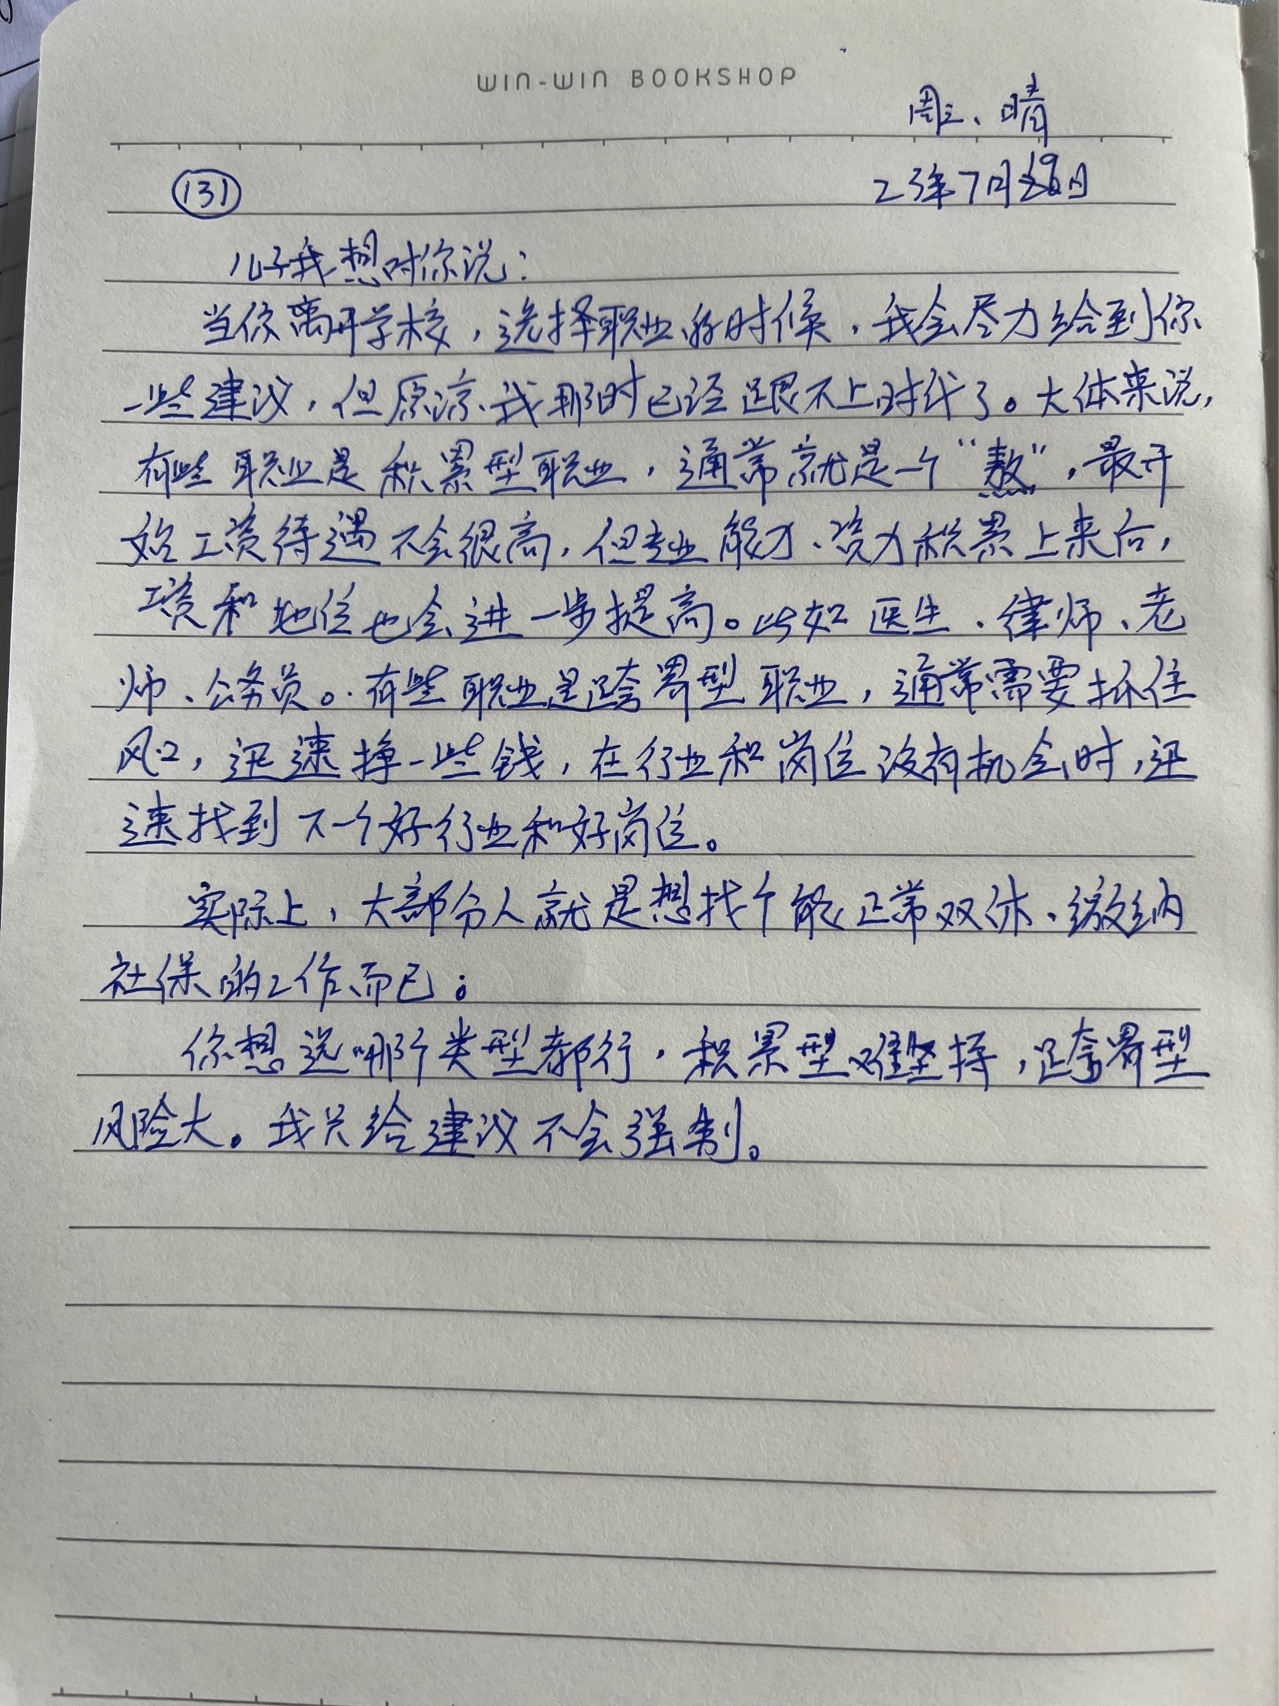 WIN-WIN BOOKSHOP
周三、晴
131
23年7月19日
儿子我想对你说：
当你离开学校，选择职业的时候，我会尽力给到你
一些建议，但原谅我那时已经跟不上时代了。大体来说，
有些职业是积累型职业，通常就是一个“熬”，最开
始工资待遇不会很高，但专业能力、资力积累上来后，
工资和地位也会进一步提高。比如医生、律师、老
师、公务员。有些职业是跨界型职业，通常需要抓住
风口，迅速挣一些钱，在行业和岗位没有机会时，迅
速找到下一个好行业和好岗位。
实际上，大部分人就是想找个能正常双休、缴纳
社保的工作而已。
你想选哪个类型都行，积累型难坚持，跨界型
风险大。我只给建议不会强制。